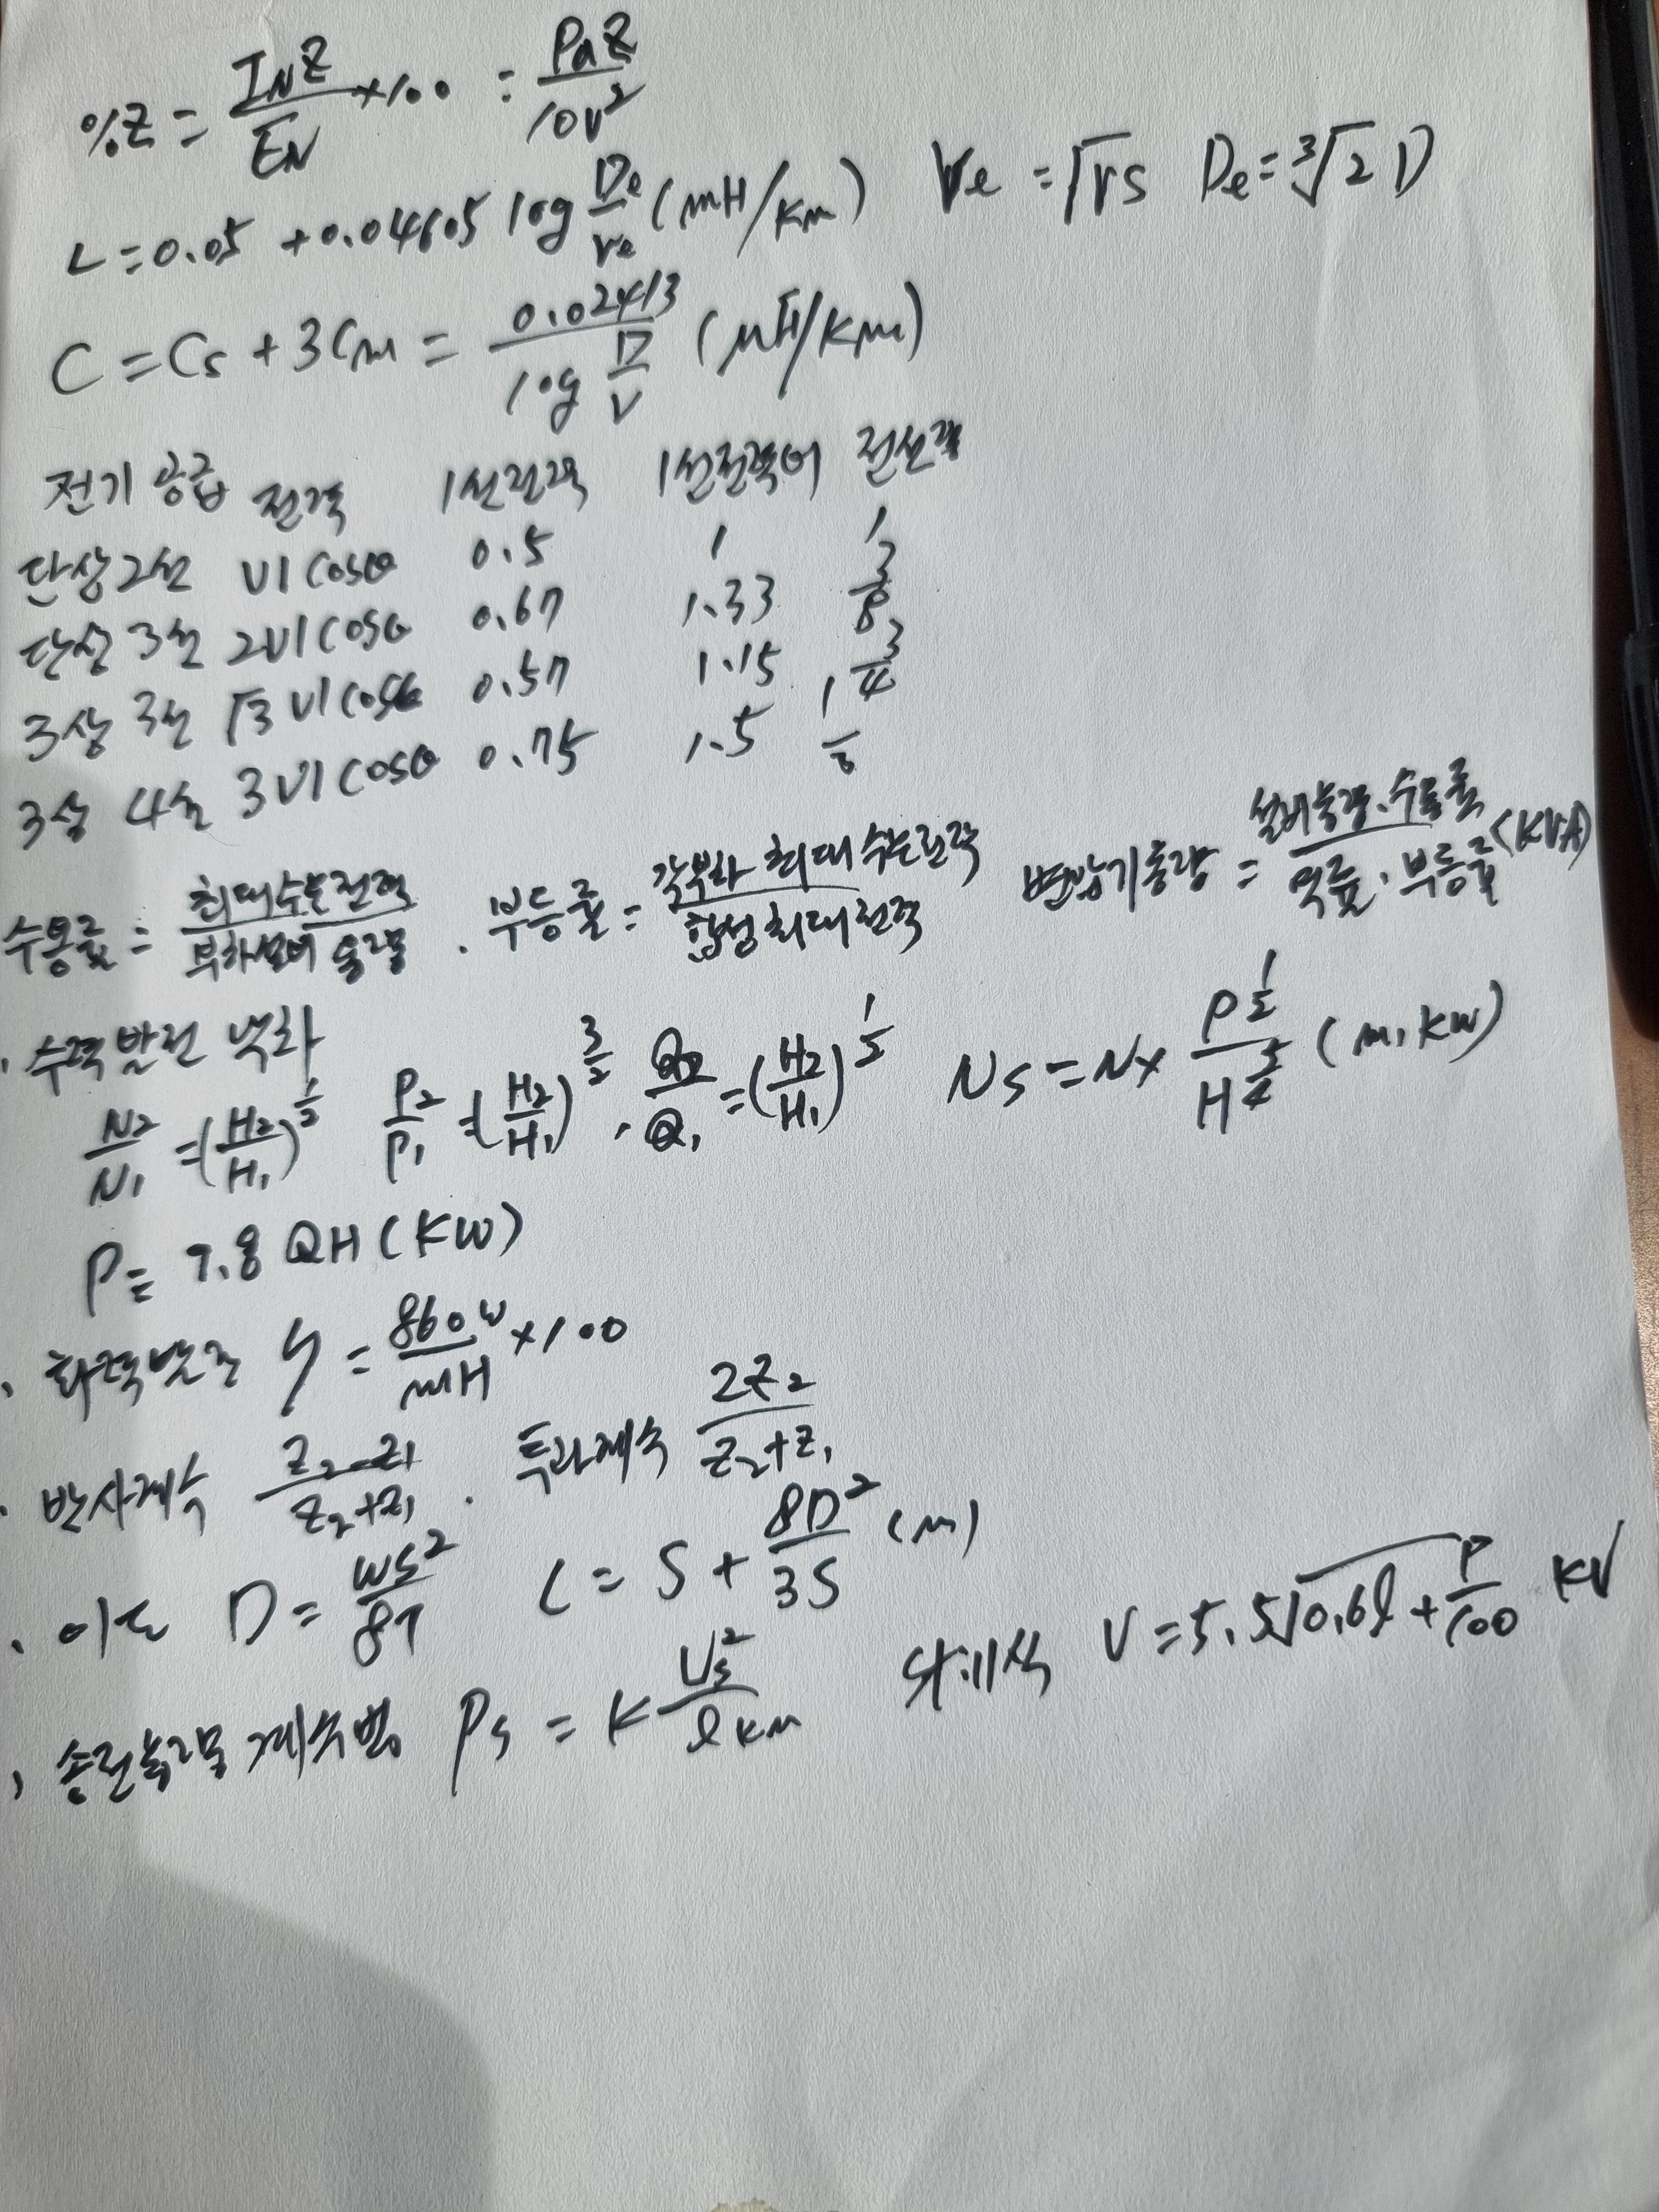 %Z = INZ/EN ×100 = PaZ/10V²
L=0.05 +0.04605 log De/re (mH/km) re =√rs De=³√2 D
C = Cs + 3Cm = 0.02413/log D/r (μF/km)
전기 공급 전력 1선전력 1선전력비 전선량
단상2선 VI cosθ 0.5 1 1
단상 3선 2VI cosθ 0.67 1.33 3/8
3상 3선 √3 VI cosθ 0.57 1.15 3/4
3상 4선 3VI cosθ 0.75 1.5 1/3
수용률 = 최대수요전력/부하설비 용량 . 부등률 = 각부하 최대수요전력/합성최대전력 변압기용량 = 설비용량.수용률/역률.부등률 (KVA)
. 수력발전 낙차
N2/N1 =(H2/H1)^1/2 P2/P1 =(H2/H1)^3/2 . Q2/Q1 =(H2/H1)^1/2 NS = N× P^1/2/H^5/4 (m, kW)
P= 9.8 QH (KW)
. 화력발전 η = 860W/mH ×100
. 반사계수 Z2-Z1/Z2+Z1 . 투과계수 2Z2/Z2+Z1
. 이도 D = WS²/8T L = S + 8D²/3S (m)
. 송전용량 계수법 Ps = K Vs²/ℓ km 스틸식 V = 5.5√0.6ℓ + P/100 KV